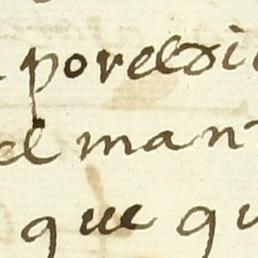 por el di
el man
que qu